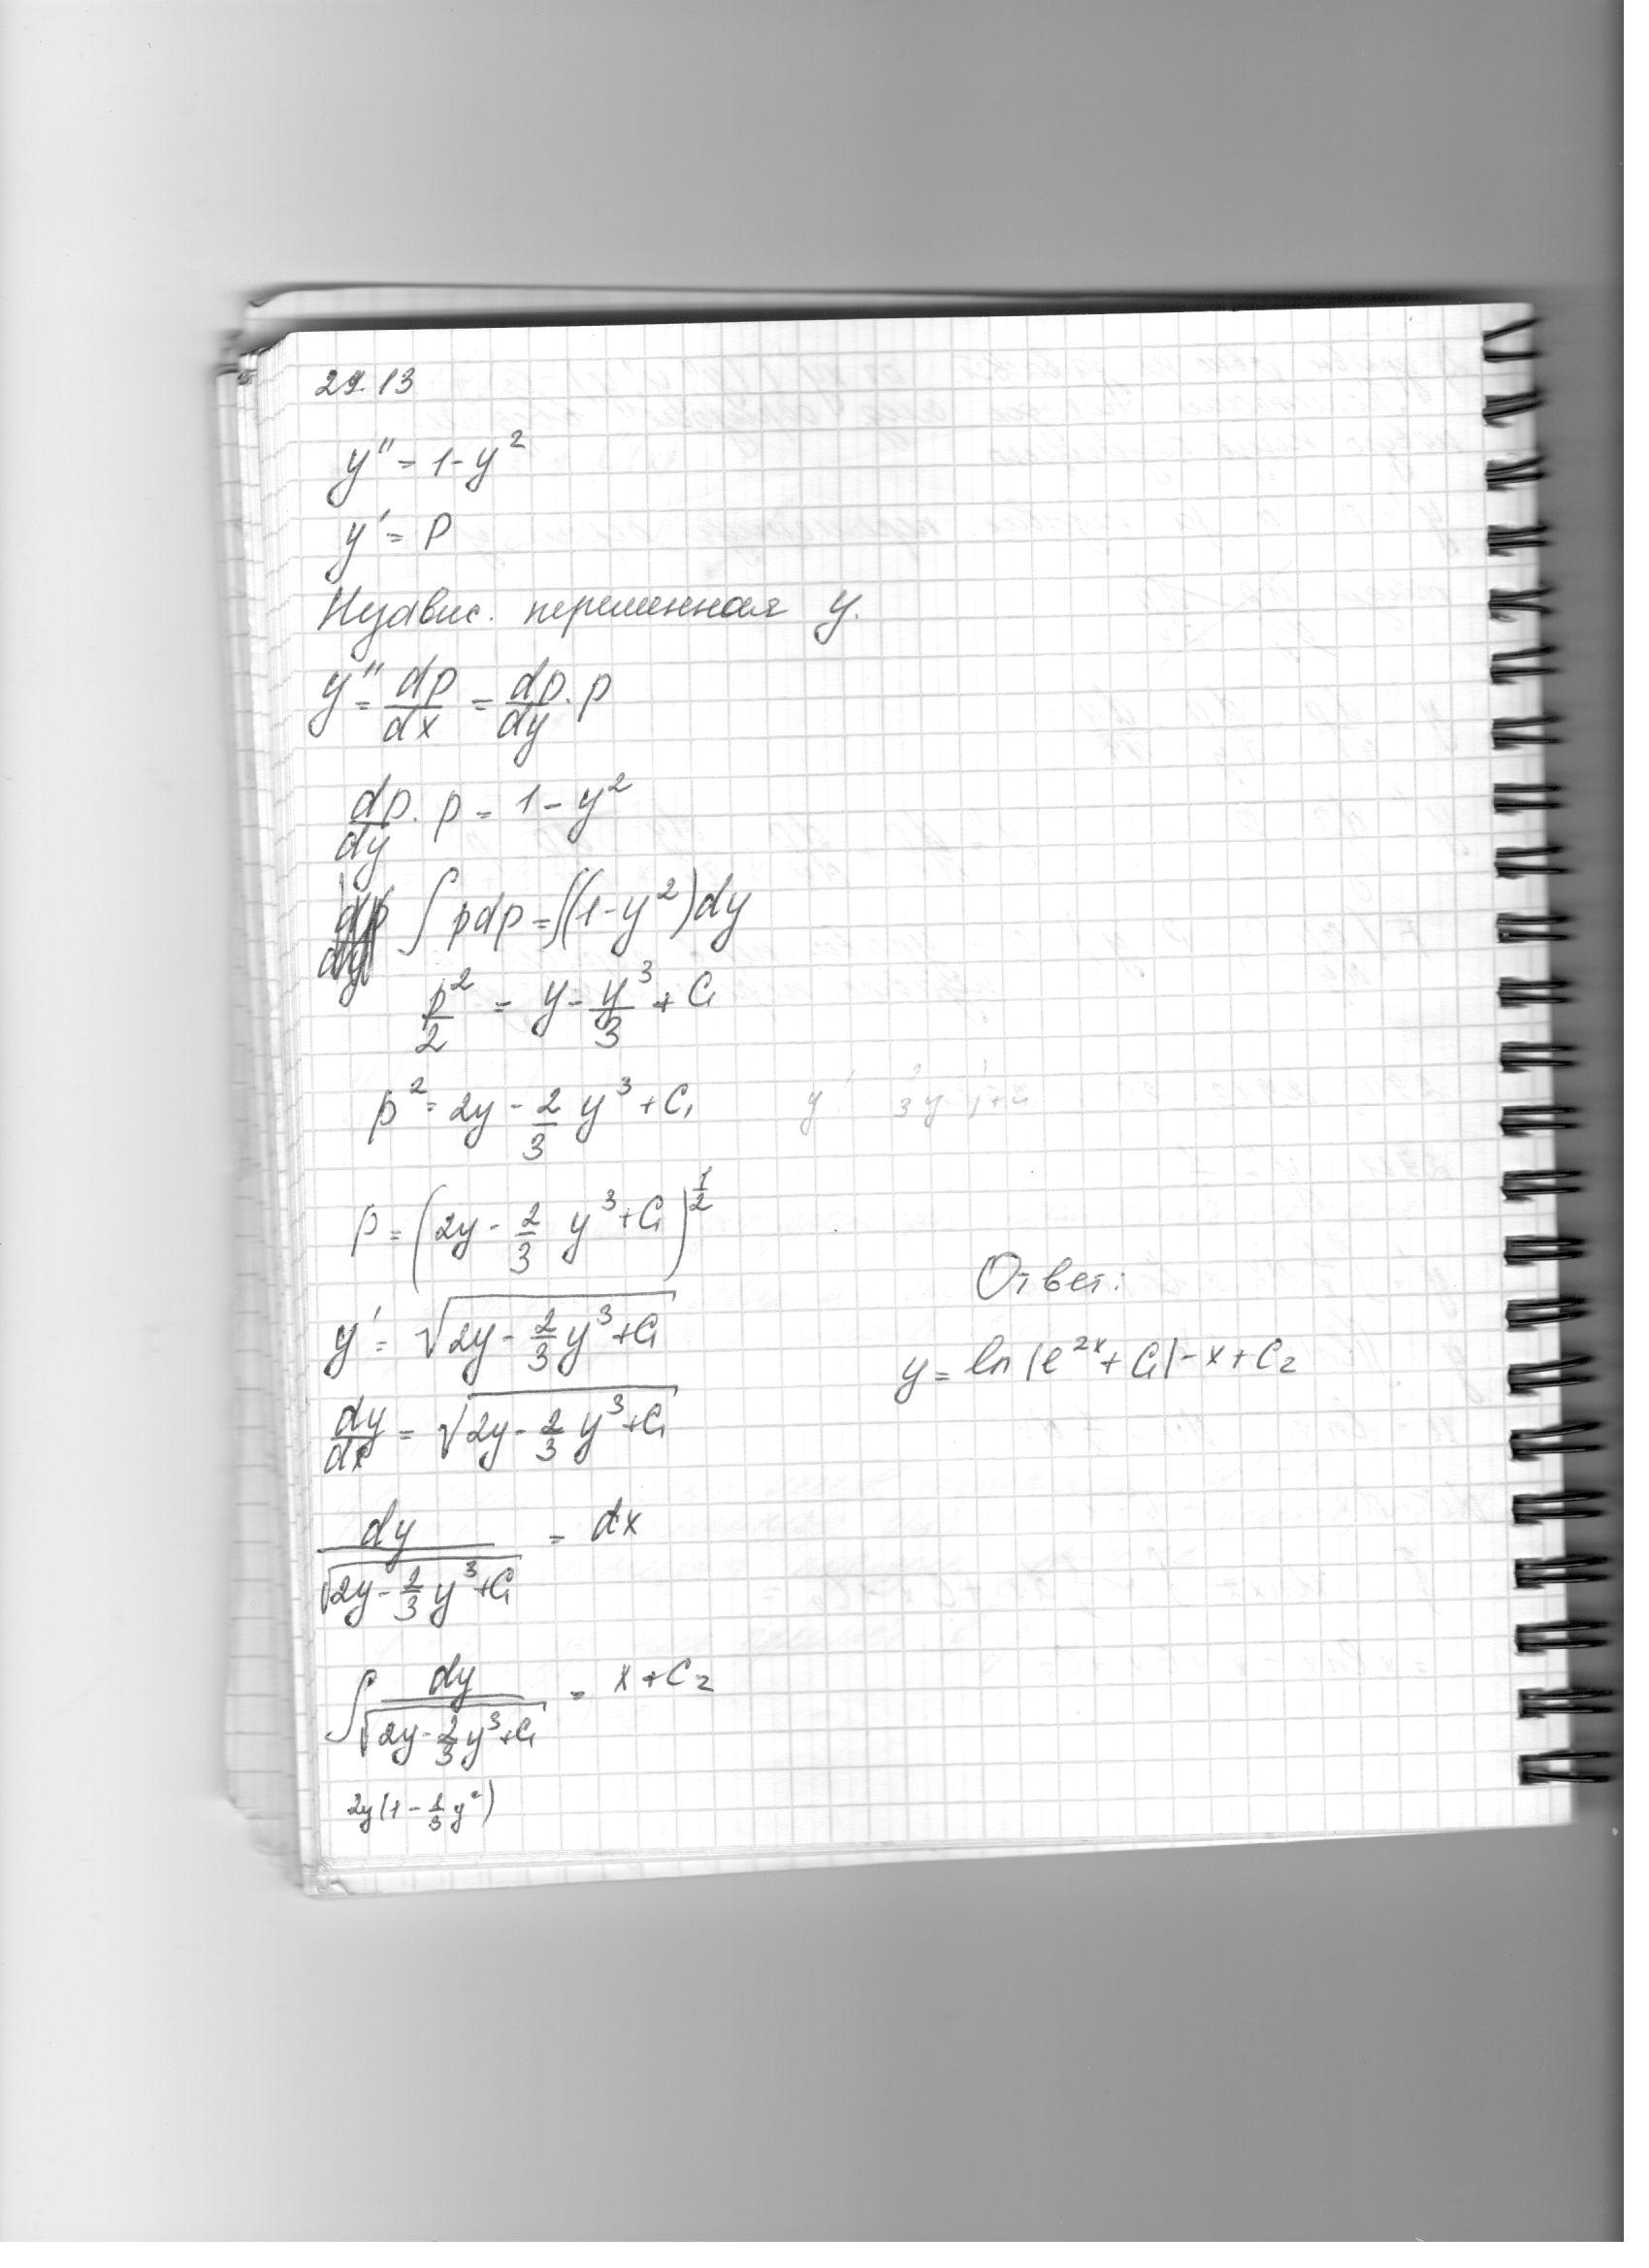 29.13
y'' = 1 - y²
y' = P
Независ. переменная y.
y'' = dp/dx = dp/dy · p
dp/dy · p = 1 - y²
∫ p dp = ∫(1 - y²) dy
p²/2 = y - y³/3 + C₁
p² = 2y - 2/3 y³ + C₁
p = (2y - 2/3 y³ + C₁)^(1/2)
y' = √(2y - 2/3 y³ + C₁)
dy/dx = √(2y - 2/3 y³ + C₁)
dy/√(2y - 2/3 y³ + C₁) = dx
∫ dy/√(2y - 2/3 y³ + C₁) = x + C₂
2y(1 - 1/3 y²)
Ответ:
y = ln|e^(2x) + C₁| - x + C₂